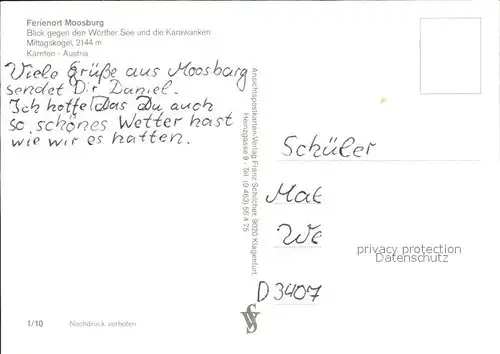 Ferienort Moosburg
Blick gegen den Wörther See und die Karawanken
Mittagskogel, 2144 m
Kärnten - Austria
Viele Grüße aus Moosburg
sendet Dir Daniel.
Ich hoffe Das Du auch
so schönes Wetter hast
wie wir es hatten.
Ansichtspostkarten-Verlag Franz Schilcher, 9020 Klagenfurt
Heinzgasse 8 - Tel. (0 463) 56 4 75
Schüler
Mat
We
privacy protection
Datenschutz
D 3407
1/10 Nachdruck verboten